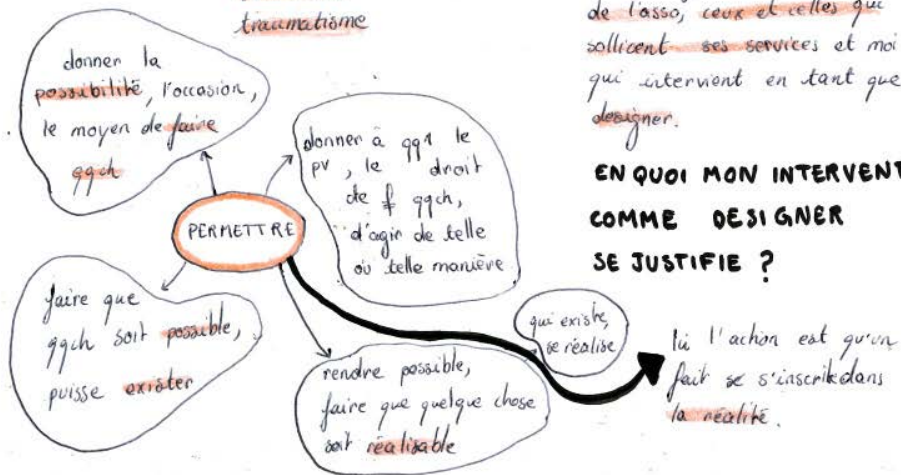 traumatisme
donner la
possibilité, l'occasion,
le moyen de faire
qqch
donner à qq1 le
pv, le droit
de f qqch,
d'agir de telle
ou telle manière
PERMETTRE
faire que
qqch soit possible,
puisse exister
rendre possible,
faire que quelque chose
soit réalisable
qui existe,
se réalise
de l'asso, ceux et celles qui
sollicent ses services et moi
qui intervient en tant que
designer.
EN QUOI MON INTERVENT
COMME DESIGNER
SE JUSTIFIE ?
Ici l'action est qu'un
fait se s'inscrit dans
la réalité.